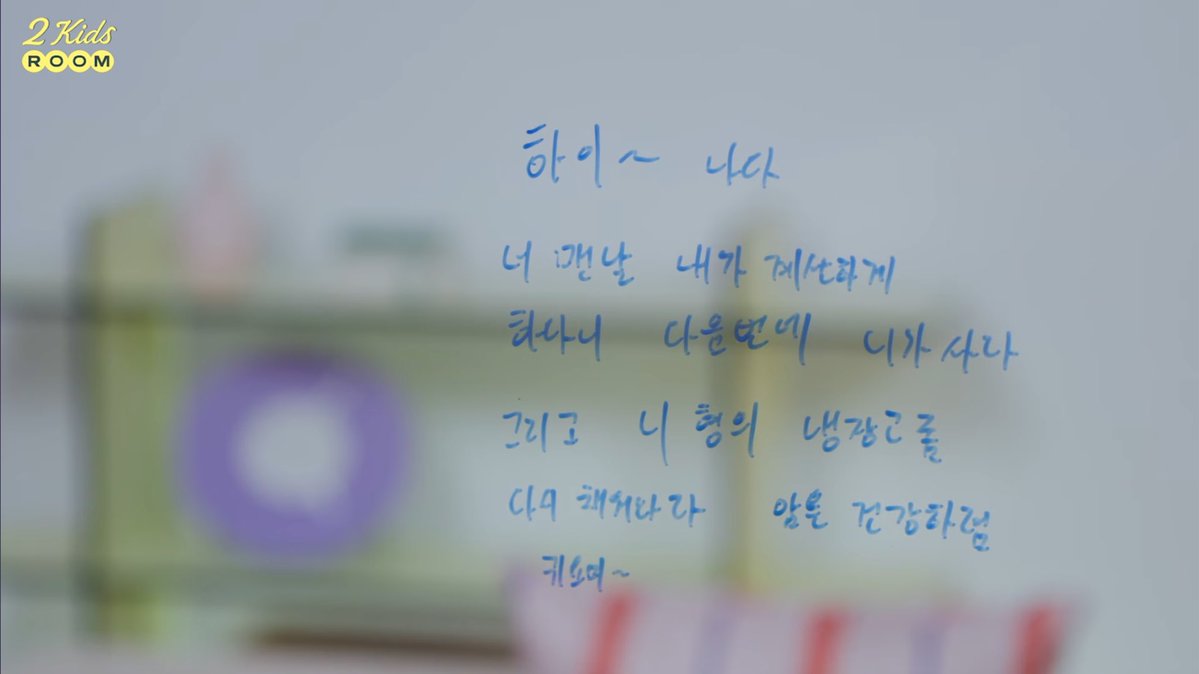 2 Kids
ROOM
하이~ 나다
너 맨날 내가 계산하게
하다니 다음번에 니가 사라
그리고 니 형의 냉장고를
다 채워놔라 암튼 건강하렴
귀요미~